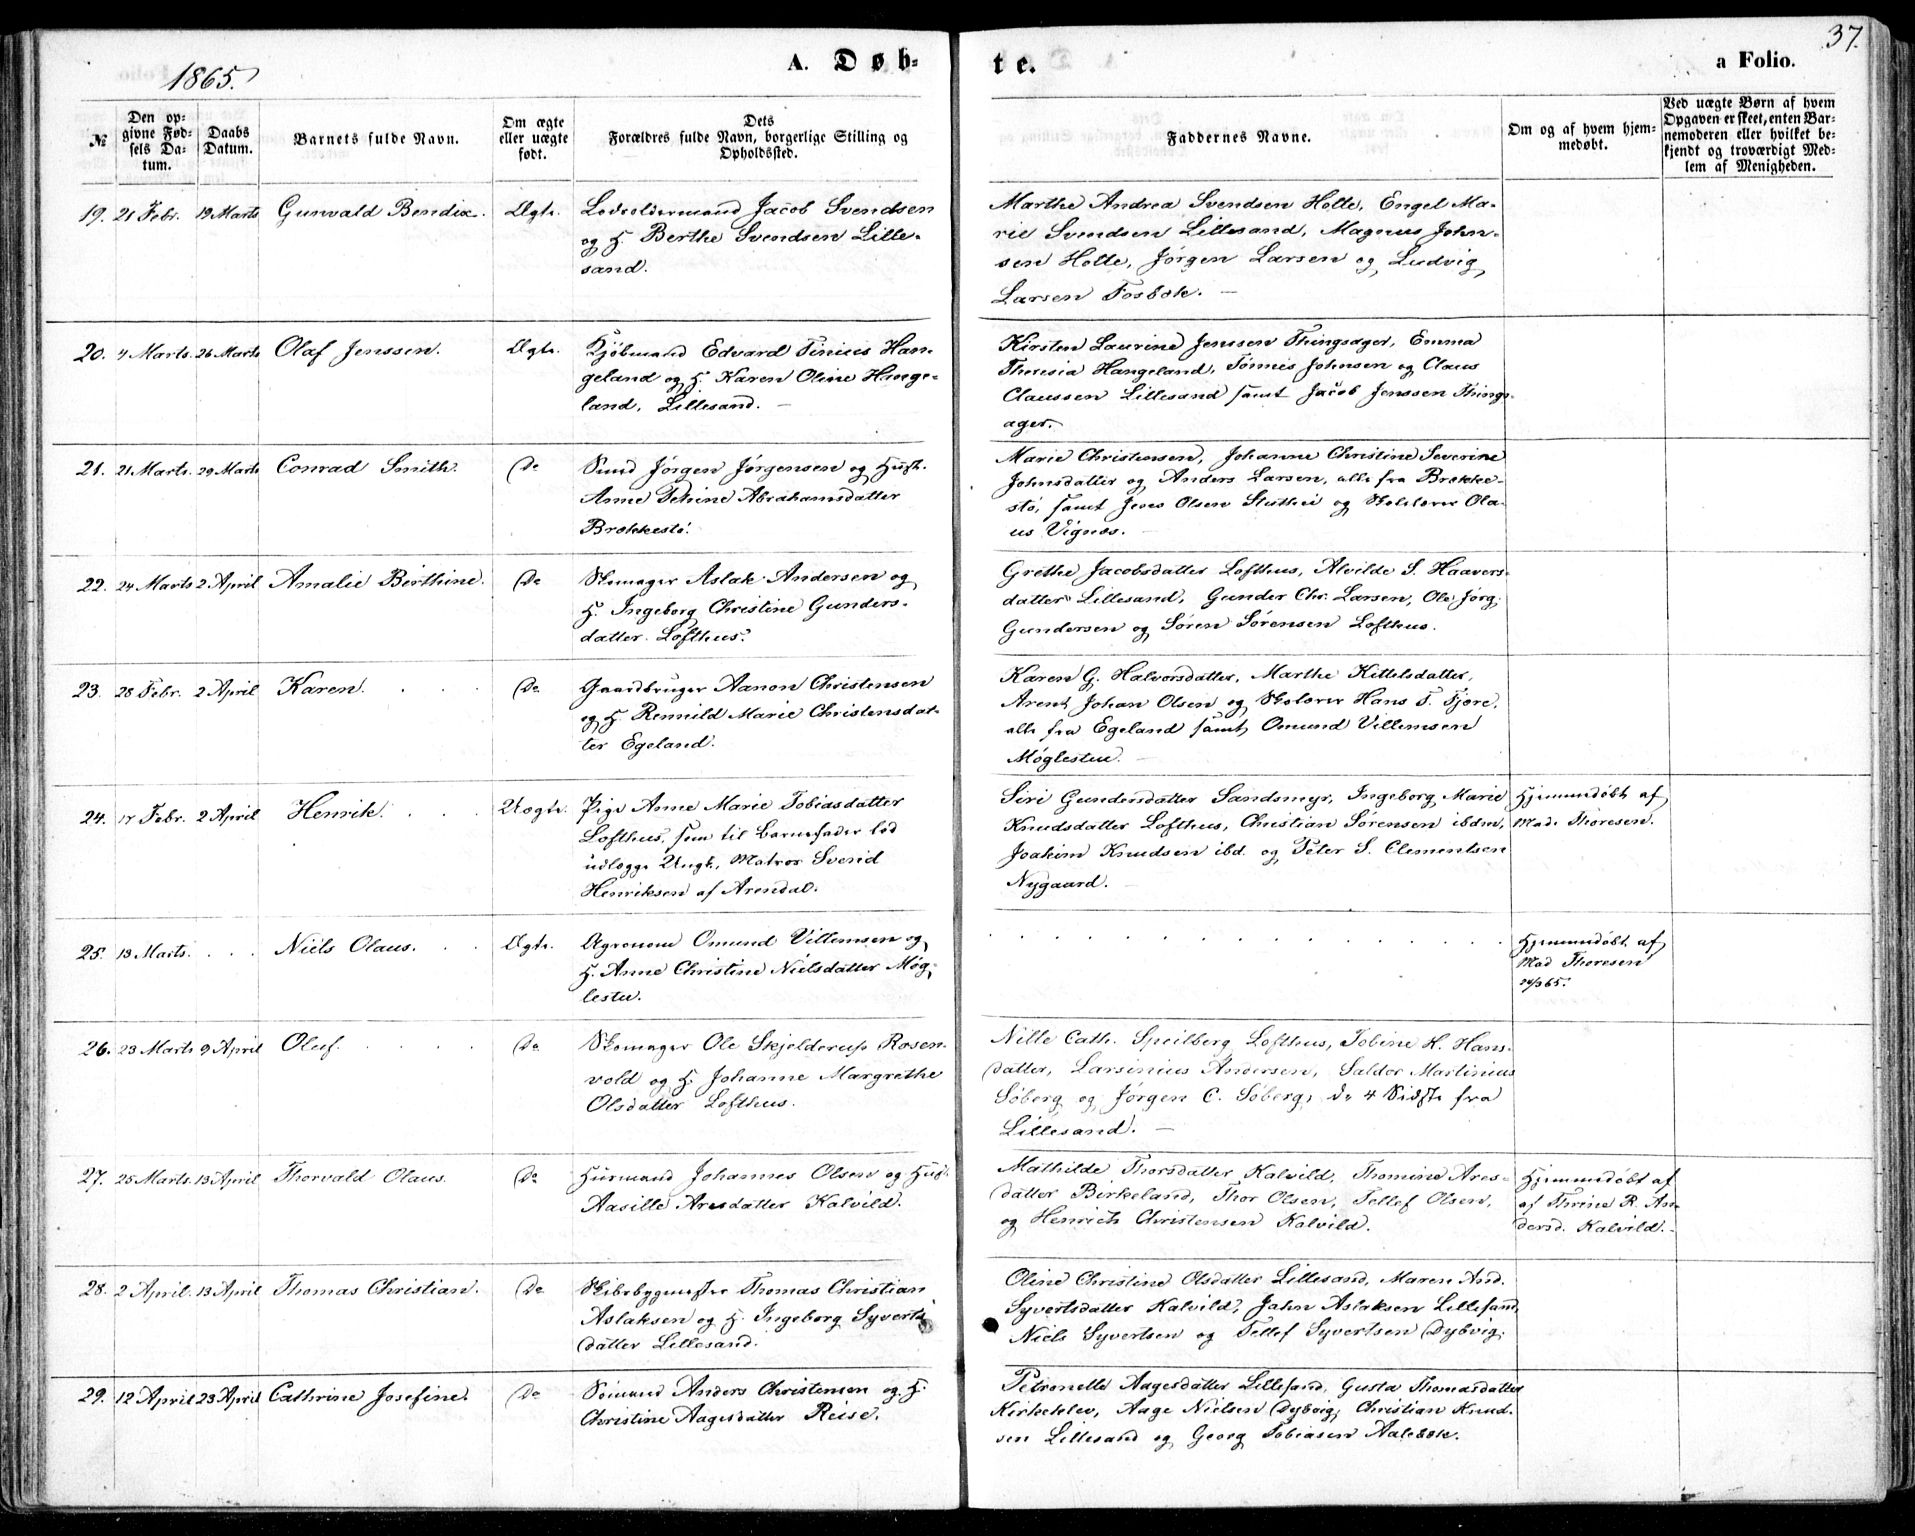 1865.
A. Døb-
te.
a Folio.
37.
№
Den op-
givne Fød-
sels Da-
tum.
Daabs
Datum.
Barnets fulde Navn.
Om ægte
eller uægte
født.
Dets
Forældres fulde Navn, borgerlige Stilling og
Opholdssted.
Faddernes Navne.
Om og af hvem hjem-
medøbt.
Ved uægte Børn af hvem
Opgaven er skeet, enten Bar-
nemoderen eller hvilket be-
kjendt og troværdigt Med-
lem af Menigheden.
19. 21 Febr. 19 Marts Gunvald Bendix. Ægte. Lodsoldermand Jacob Svendsen
og H. Berthe Svendsen Lille-
sand.
Marthe Andrea Svendsen Holte, Engel Ma-
rie Svendsen Lillesand, Magnus John-
sen Holte, Jørgen Larsen og Ludvig
Larsen Fosbæk. —
20. 4 Marts. 26 Marts Olaf Jenssen. Ægte. Kjøbmand Edvard Tinius Han-
geland og H. Karen Oline Hange-
land, Lillesand. —
Kirsten Laurine Jenssen Thingsager, Emma
Theresia Hangeland, Tønnes Johnsen og Claus
Claussen Lillesand samt Jacob Jenssen Things-
ager.
21. 21 Marts. 29 Marts Conrad Smith. Do Smed Jørgen Jørgensen og Hust.
Anne Tehine Abrahamsdatter
Brækkestø.
Marie Christensen, Johanne Christine Severine
Johnsdatter og Anders Larsen, alle fra Brække-
stø, samt Jens Olsen og Skolelærer Ola-
us Vignæs.
22. 24 Marts 2 April Amalie Birthine. Do Skomager Aslak Andersen og
H. Ingeborg Christine Gunders-
datter. Lofthus.
Grethe Jacobsdatter Lofthus, Alvilde S. Haavers-
datter Lillesand, Gunder Chr. Larsen, Ole Jørg.
Gundersen og Søren Sørensen Lofthus.
23. 28 Febr. 2 April Karen. Do Gaardbruger Aanon Christensen
og H. Rennild Marie Christensdat-
ter Egeland.
Karen G. Halvorsdatter, Marthe Kittelsdatter,
Arent Johan Olsen og Skolærer Hans T. Fjære,
alle fra Egeland samt Omund Villemsen
Møglestue. —
24. 17 Febr. 2 April Henrik. Uægte. Pige Anne Marie Tobiasdatter
Lofthus, som til Barnefader lod
udlægge Ungk. Matros Svend
Henriksen af Arendal.
Siri Gundersdatter Sandsmyr, Ingeborg Marie
Knudsdatter Lofthus, Christian Sørensen ibdm,
Joakim Knudsen ibd. og Peter S. Clementsen
Nygaard. —
Hjemmedøbt af
Mad. Thoresen.
25. 13 Marts. Niels Olaus. Ægte. Agronom Omund Villemsen og
H. Anne Christine Nielsdatter Møg-
lestu.
Hjemmedøbt af
Mad Thoresen
26. 23 Marts 9 April Oluf. Do Skomager Ole Skjelderup Rosen-
vold og H. Johanne Margrethe
Olsdatter Lofthus.
Nille Cath. Speilberg Lofthus, Tobine H. Hans-
datter, Larsinius Andersen, Saldor Martinius
Søberg og Jørgen C. Søberg, de 4 Sidste fra
Lillesand. —
27. 25 Marts. 13 April Thorvald Olaus. Do Huusmand Johannes Olsen og Hust.
Aasille Aresdatter Kalvild.
Mathilde Thorsdatter Kalvild, Thomine Ares-
datter Birkeland, Thor Olsen, Tellef Olsen,
og Henrich Christensen Kalvild.
Hjemmedøbt af
af Thrine R. An-
dersd. Kalvild.
28. 2 April. 13 April Thomas Christian. Do Skibsbygmester Thomas Christian
Aslaksen og H. Ingeborg Syverts-
datter Lillesand.
Oline Christine Olsdatter Lillesand, Maren And.
Syvertsdatter Kalvild, Jahn Aslaksen Lillesand
Niels Syvertsen og Tellef Syvertsen Dybvig.
29. 12 April 23 April Cathrine Josefine. Do Sømand Anders Christensen og H.
Christine Aagesdatter Reise.
Petronelle Aagesdatter Lillesand, Gusta Thomasdatter
Kirkeklev, Aage Nielsen Dybvig, Christian Knud-
sen Lillesand og Georg Tobiasen Aalebæk.